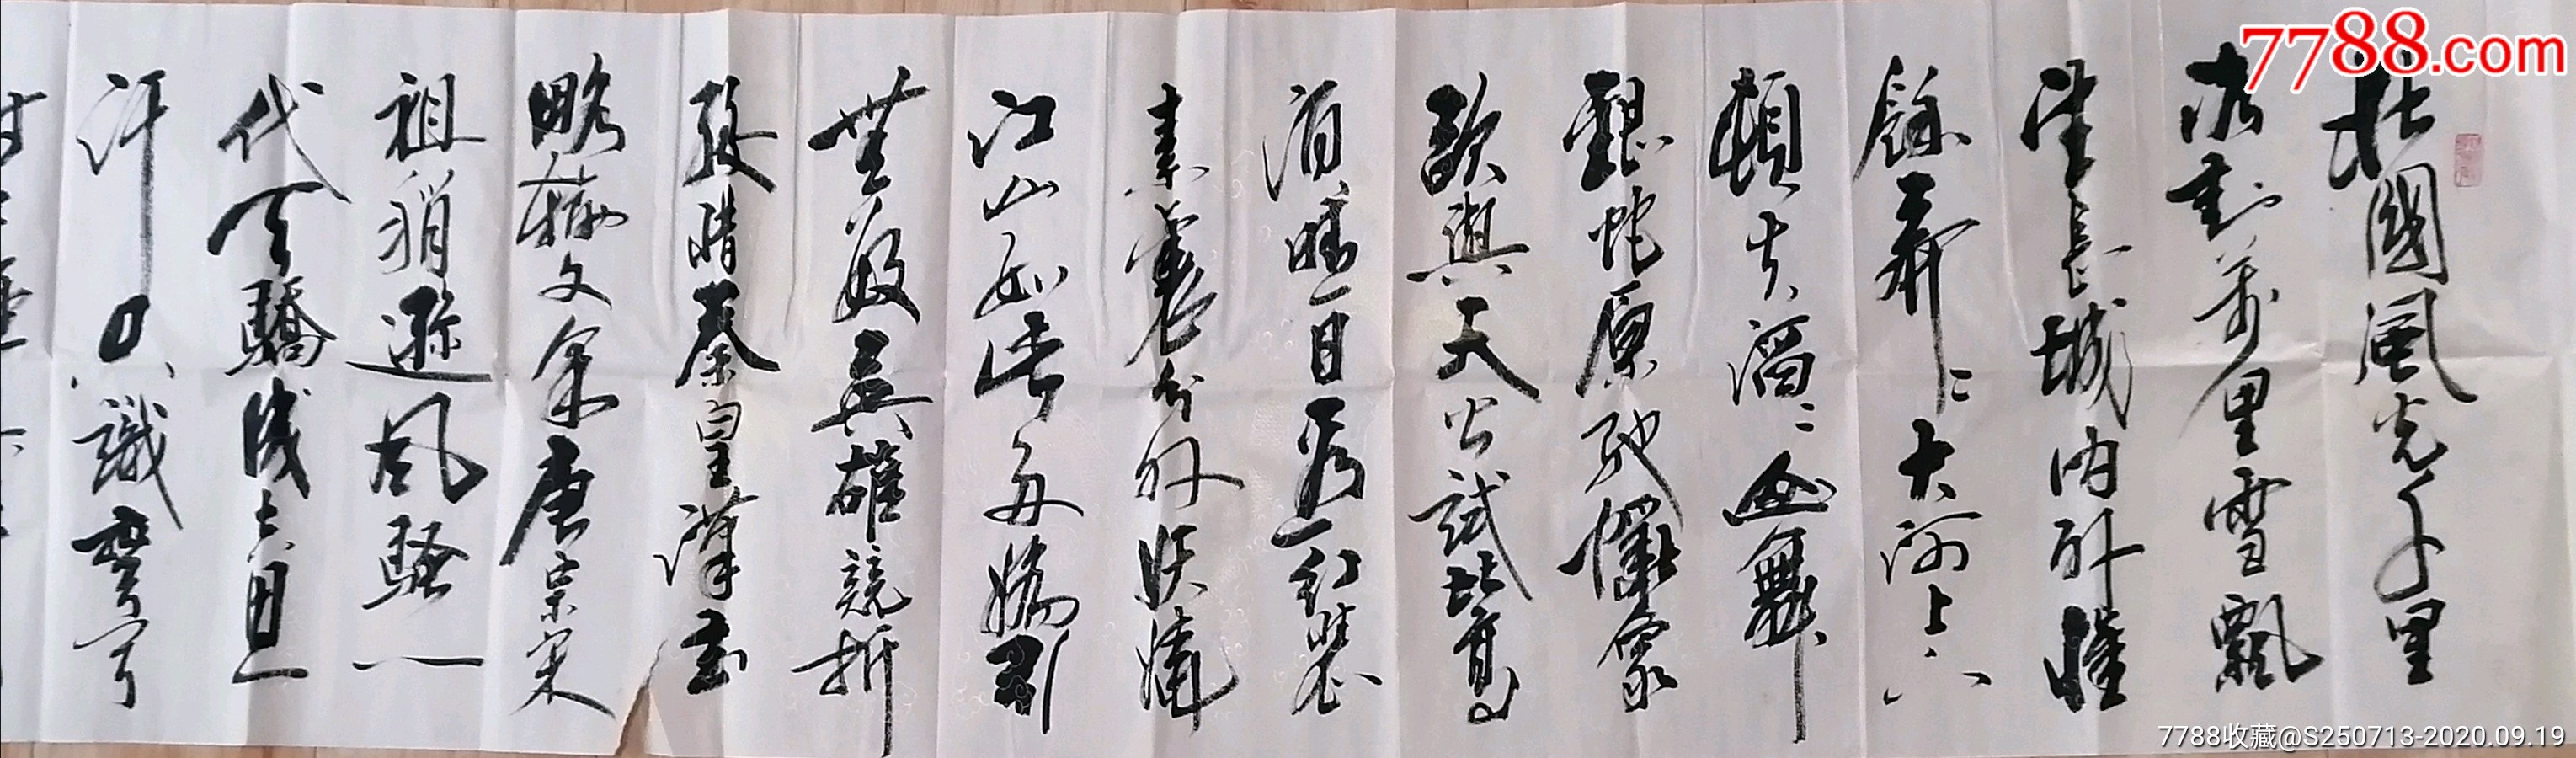 北國風光千里
冰封萬里雪飄
望長城內外惟
餘莽〻大河上下
頓失滔〻山舞
銀蛇原馳蠟象
欲與天公試比高
須晴日看紅裝
素裹分外妖嬈
江山如此多嬌引
無數英雄競折
腰惜秦皇漢武
略輸文采唐宗宋
祖稍遜風騷一
代天驕成吉思
汗只識彎弓
7788.com
7788收藏@S250713-2020.09.19